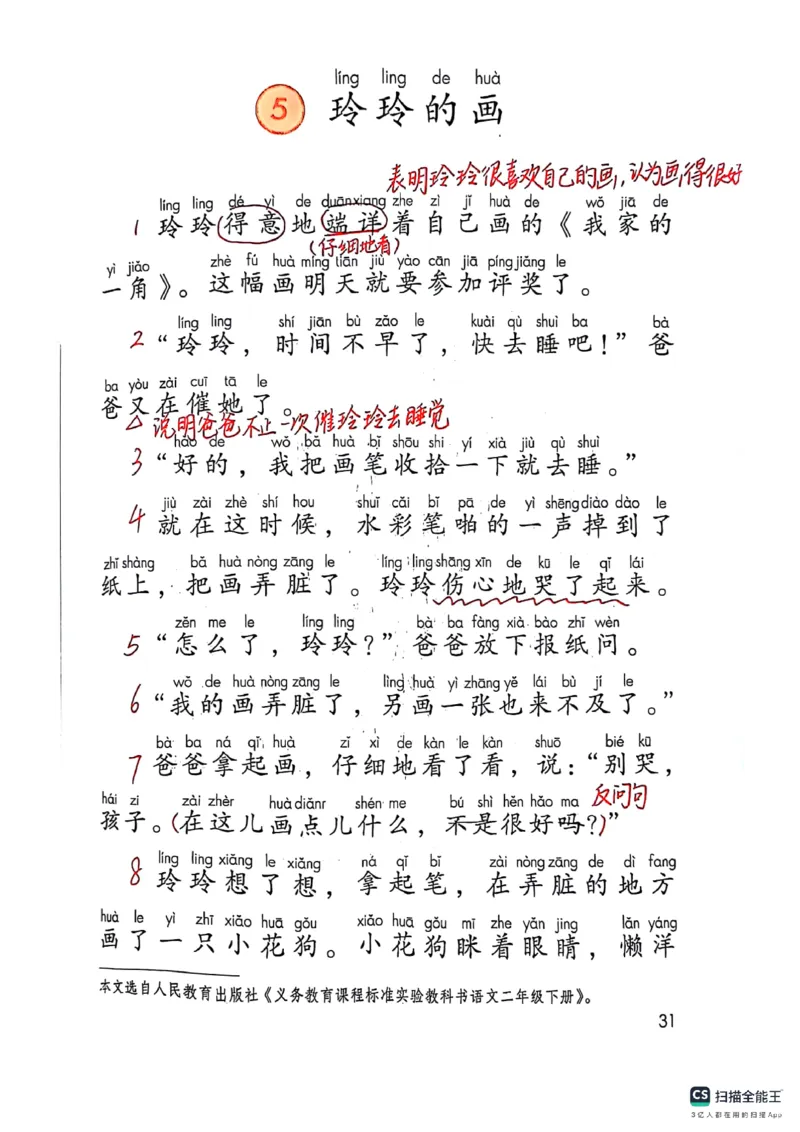 líng ling de huà
5 玲玲的画
表明玲玲很喜欢自己的画,认为画得很好
líng ling dé yì de duānxiang zhe zì jǐ huà de wǒ jiā de
1 玲玲得意地端详着自己画的《我家的
(仔细地看)
yì jiǎo zhè fú huà míng tiān jiù yào cān jiā píng jiǎng le
一角》。这幅画明天就要参加评奖了。
líng ling shí jiān bù zǎo le kuài qù shuì ba bà
2 “玲玲,时间不早了,快去睡吧!”爸
ba yòu zài cuī tā le
爸又在催她了。
△说明爸爸不止一次催玲玲去睡觉
hǎo de wǒ bǎ huà bǐ shōu shi yí xià jiù qù shuì
3 “好的,我把画笔收拾一下就去睡。”
jiù zài zhè shí hou shuǐ cǎi bǐ pā de yì shēng diào dào le
4 就在这时候,水彩笔啪的一声掉到了
zhǐ shàng bǎ huà nòng zāng le líng ling shāng xīn de kū le qǐ lái
纸上,把画弄脏了。玲玲伤心地哭了起来。
zěn me le líng ling bà ba fàng xià bào zhǐ wèn
5 “怎么了,玲玲?”爸爸放下报纸问。
wǒ de huà nòng zāng le lìng huà yì zhāng yě lái bù jí le
6 “我的画弄脏了,另画一张也来不及了。”
bà ba ná qǐ huà zǐ xì de kàn le kàn shuō bié kū
7 爸爸拿起画,仔细地看了看,说:“别哭,
hái zi zài zhèr huà diǎnr shén me bú shì hěn hǎo ma 反问句
孩子。(在这儿画点儿什么,不是很好吗?)”
líng ling xiǎng le xiǎng ná qǐ bǐ zài nòng zāng de dì fang
8 玲玲想了想,拿起笔,在弄脏的地方
huà le yì zhī xiǎo huā gǒu xiǎo huā gǒu mī zhe yǎn jing lǎn yáng
画了一只小花狗。小花狗眯着眼睛,懒洋
本文选自人民教育出版社《义务教育课程标准实验教科书语文二年级下册》。
31
CS 扫描全能王
3亿人都在用的扫描App